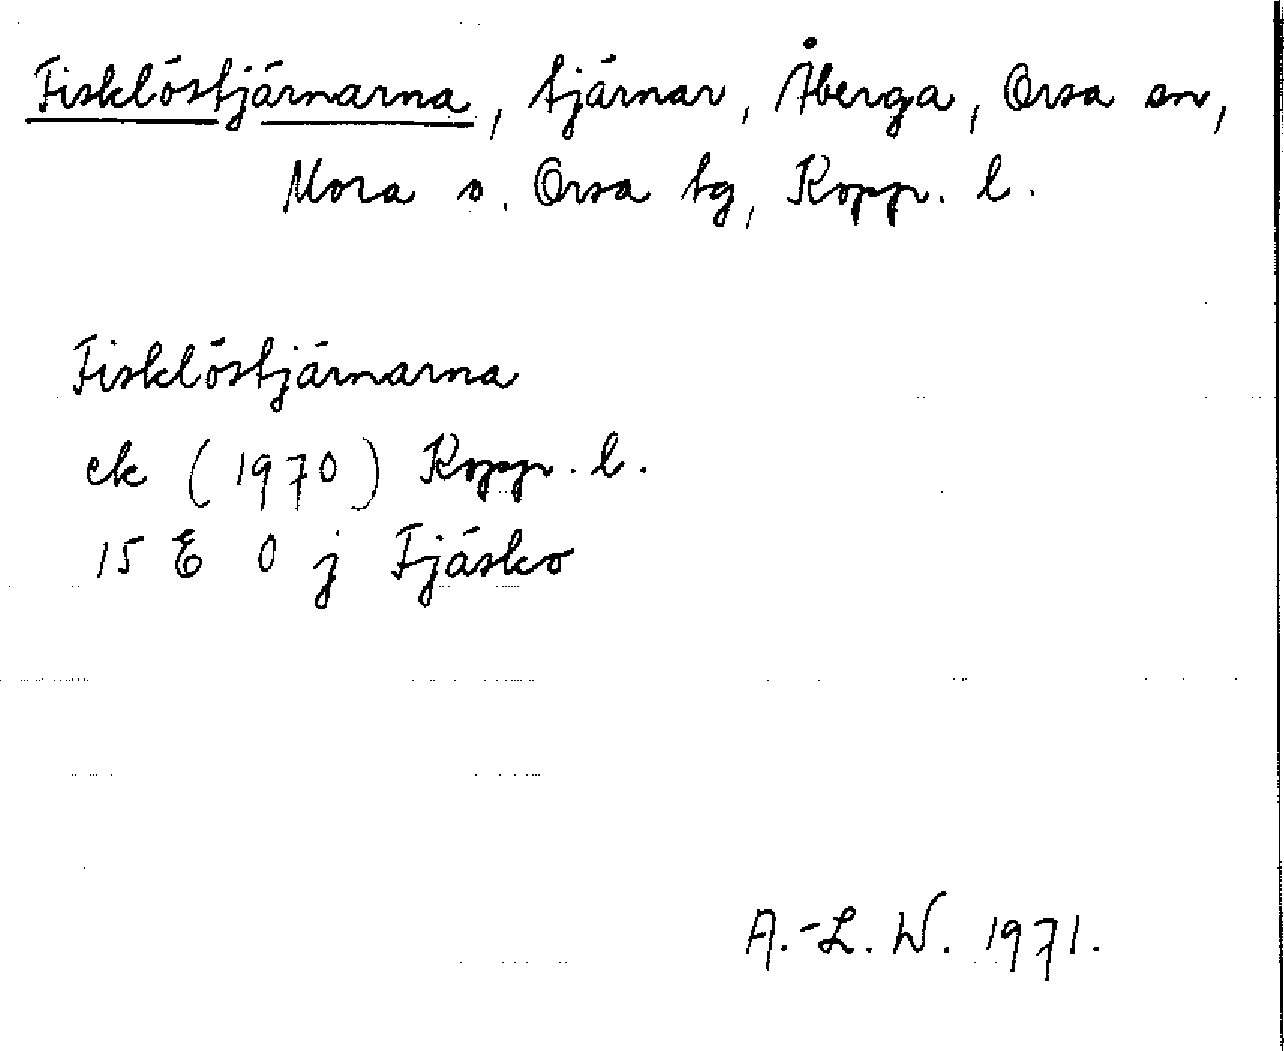 Fisklöstjärnarna, tjärnar, Åberga, Orsa sn,
Mora o. Orsa tg, Kopp. l.
Fisklöstjärnarna
ek (1970) Kopp. l.
15 E 0 j Fjäsko
A.-L. W. 1971.